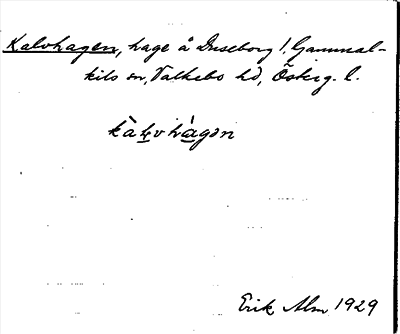 Kalvhagen, hage å Duseborg 1, Gammal-
kils sn, Valkebo hd, Österg. l.
kàḷvhàgən
Erik Alm 1929